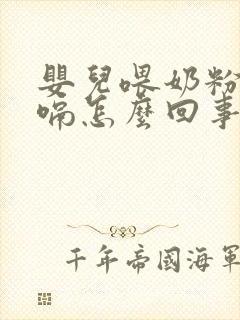 嬰兒喂奶粉
嗝怎麼回事
千年帝國海軍